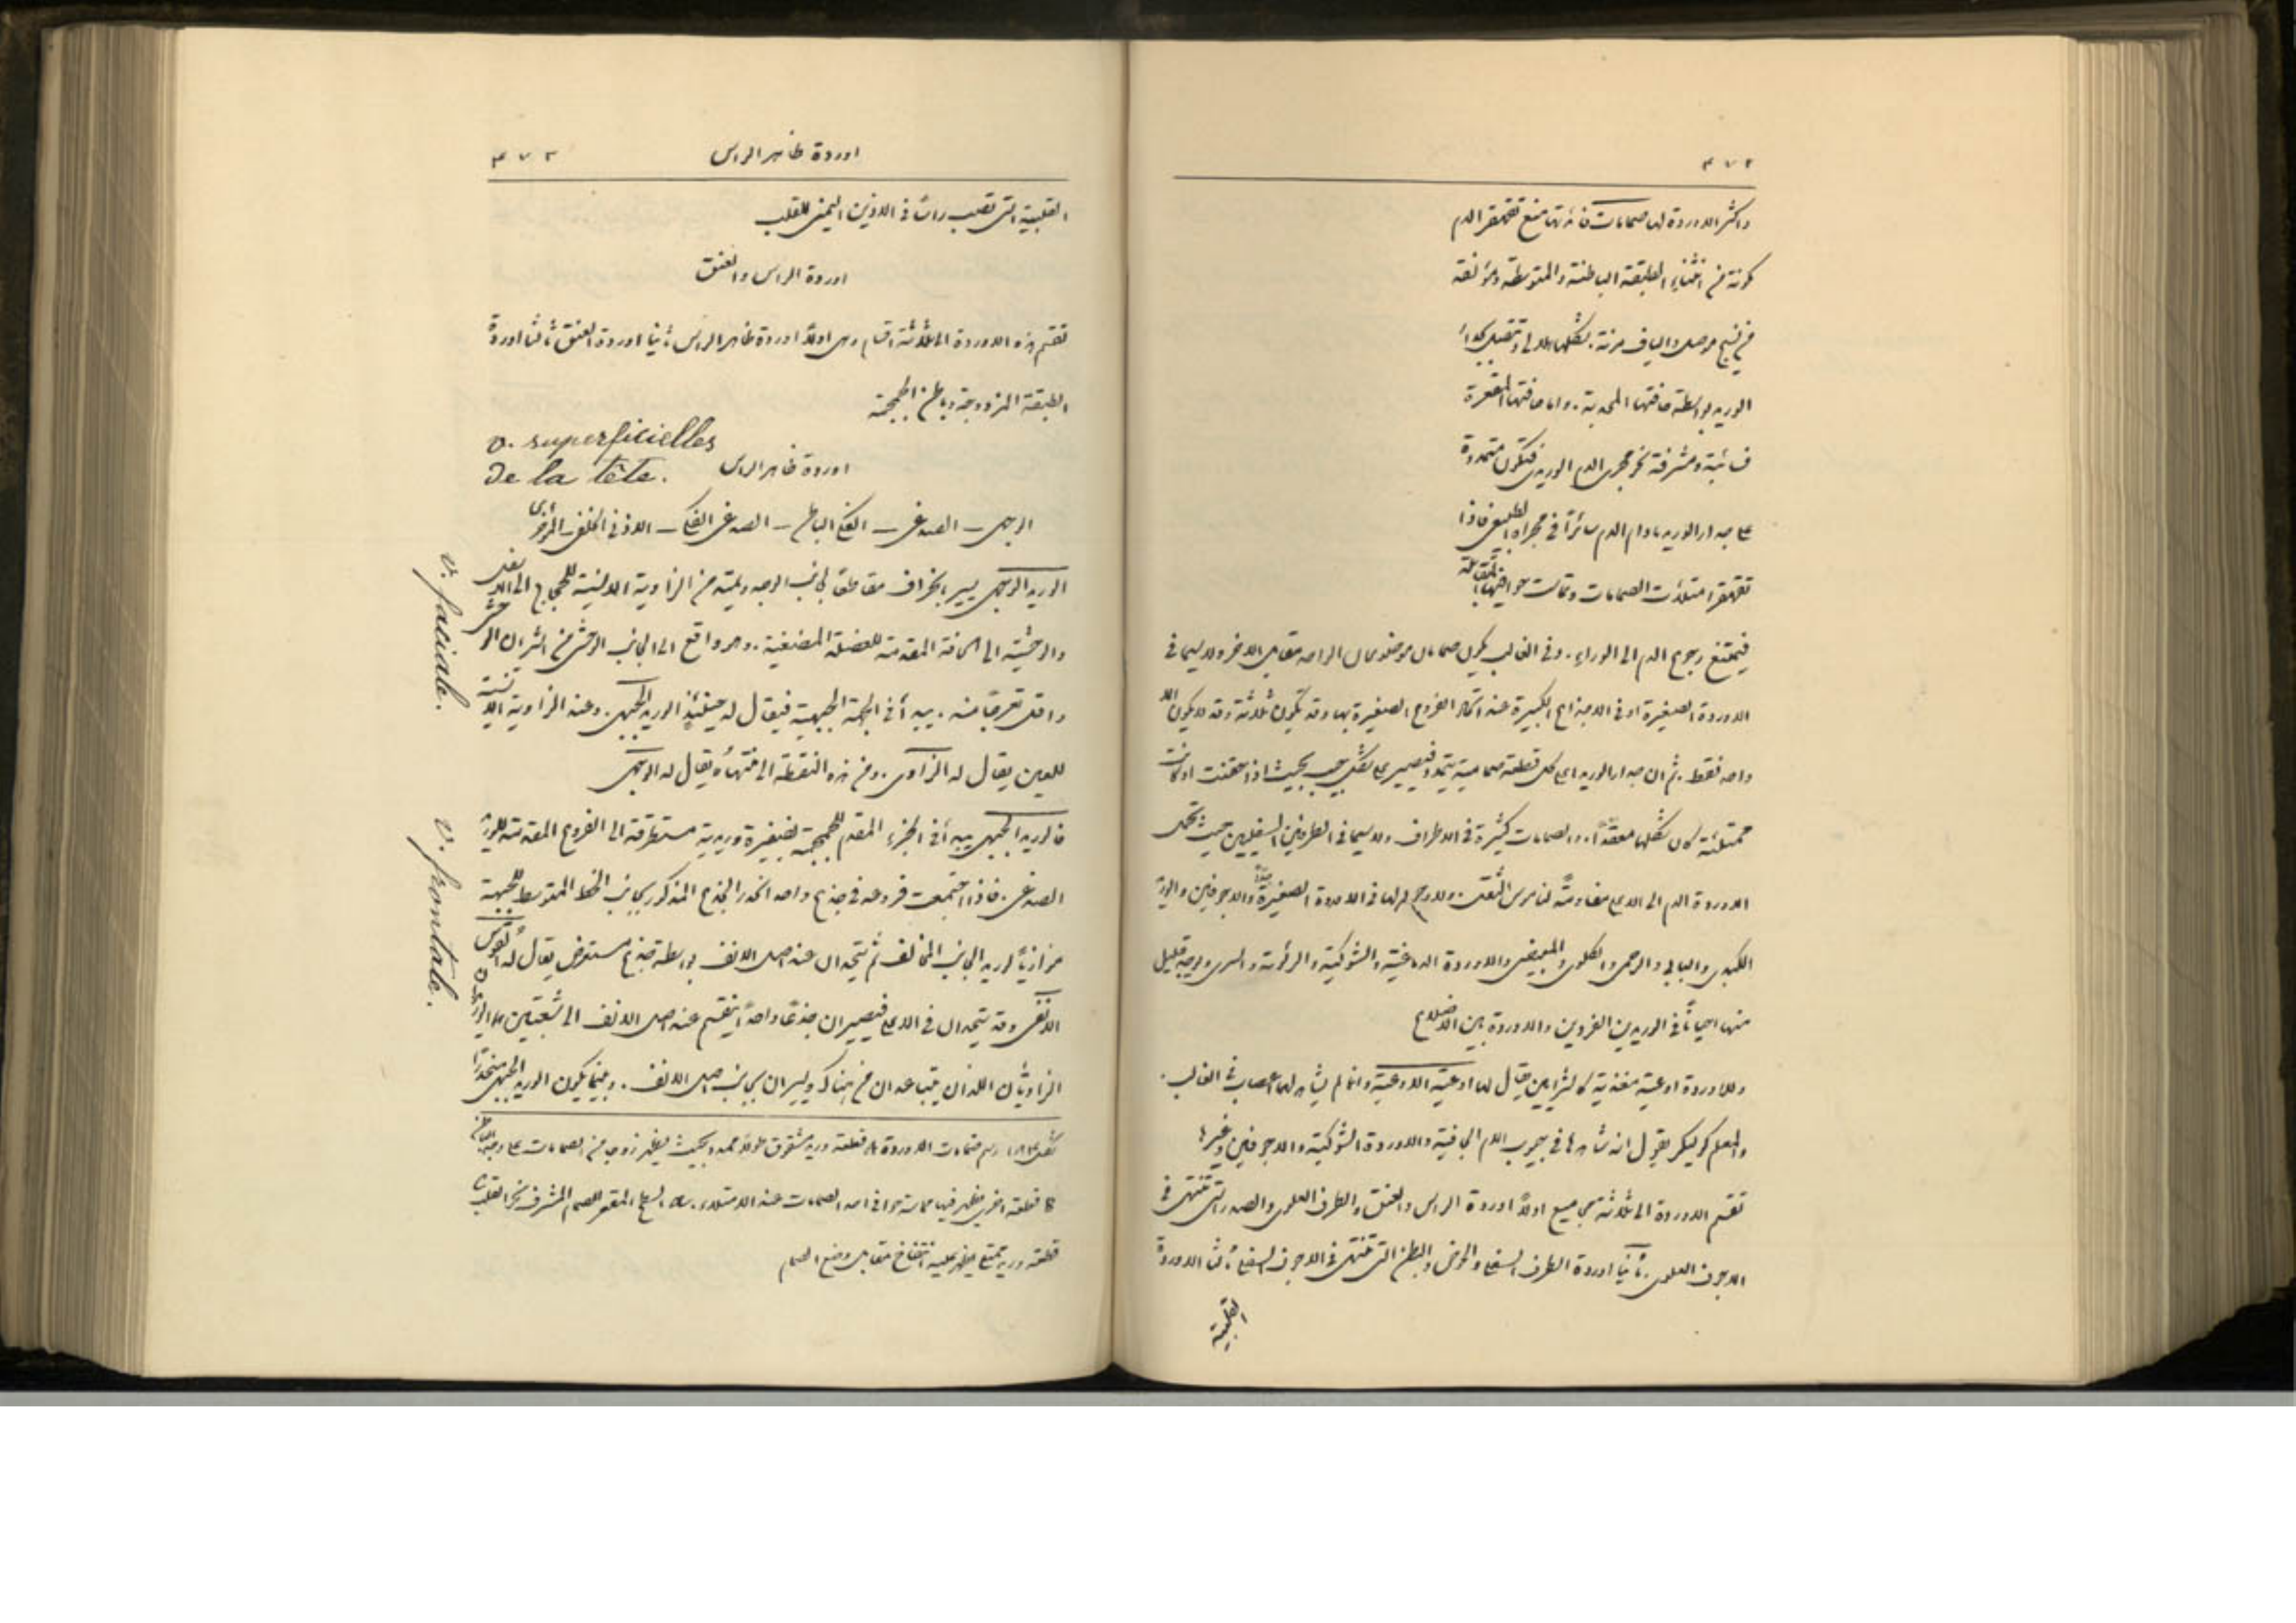 ٤٧٢
واكثر الاوردة لها صمامات فائدتها منع تقهقر الدم
مكونة من انثناء الطبقة الباطنة والمتوسطة ومؤلفة
من نسيج موصل والياف مرنة. شكلها هلالي وتتصل بجدار
الوريد بواسطة حافتها المحدبة. واما حافتها المقعرة
فسائبة ومشرفة نحو مجرى الدم الوريدي فتكون متمددة
على جدار الوريد ما دام الدم سائرًا في مجراه الطبيعي فاذا
تقهقر امتلأت الصمامات وتماست حوافيها المتقابلة
فيمتنع رجوع الدم الى الوراء. وفي الغالب يكون صمامان موضوعان الواحد مقابل الاخر ولا سيما في
الاوردة الصغيرة او في الاجذاع الكبيرة عند اتحاد الفروع الصغيرة بها وقد تكون ثلاثة وقد لا يكون الا
واحد فقط. ثم ان جدار الوريد اعلى كل قطعة صمامية يتمدد فيصير على شكل جيب بحيث اذا حقنت او كانت
ممتلئة كان شكلها معقدًا. والصمامات كثيرة في الاطراف ولا سيما في الطرفين السفليين حيث تحمل
الاوردة الدم الى الاعلى مقاومةً لناموس الثقل. ولا وجود لها في الاوردة الصغيرة جدًا والاجوفين والوريد
الكبدي والبابي والرحمي والكلوي والمبيضي والاوردة الدماغية والشوكية والرئوية والسري ويوجد قليل
منها احيانًا في الوريدين الفردين والاوردة بين الاضلاع
وللاوردة اوعية مغذية كالشرايين يقال لها اوعية الاوعية وانما لم يشاهد لها اعصاب في الغالب.
والمعلم كوليكر يقول انه شاهدها في جيوب الام الجافية والاوردة الشوكية والاجوفين وغيرها
تقسم الاوردة الى ثلاثة مجاميع اولاً اوردة الراس والعنق والطرف العلوي والصدر التي تنتهي في
الاجوف العلوي. ثانيًا اوردة الطرف السفلي والحوض والبطن التي تنتهي في الاجوف السفلي ثالثًا الاوردة
القلبية
اوردة ظاهر الراس ٤٧٣
القلبية التي تصب راسًا في الاذين اليمنى للقلب
اوردة الراس والعنق
تقسم هذه الاوردة الى ثلاثة اقسام وهي اولاً اوردة ظاهر الراس ثانيا اوردة العنق ثالثا اوردة
الطبقة المزدوجة وباطن الجمجمة
v. superficielles
de la tête.
اوردة ظاهر الراس
الوجهي ـ الصدغي ـ الفكي الباطن ـ الصدغي الفكي ـ الاذني الخلفي ـ المؤخري
v. faciale.
الوريد الوجهي يسير بانحراف مقاطعًا جانب الوجه ويمتد من الزاوية الانسية للحجاج الى الاسفل
والوحشية الى الحافة المقدمة للعضلة المضغية. وهو واقع الى الجانب الوحشي من الشريان الوجهي
واقل تعرجًا منه. يبدأ في الجهة الجبهية فيقال له حينئذٍ الوريد الجبهي. وعند الزاوية الانسية
للعين يقال له الزاوي. ومن هذه النقطة الى منتهاه يقال له الوجهي
v. frontale.
فالوريد الجبهي يبدأ في الجزء المقدم للجمجمة بضفيرة وريدية مستطرقة الى الفروع المقدمة للوريد
الصدغي. فاذا اجتمعت فروعه في جذع واحد انحدر الجذع المذكور بجانب الخط المتوسط للجبهة
موازيًا لوريد الجانب المخالف ثم يتحدان عند اصل الانف بواسطة جذع مستعرض يقال له القوس
الانفي وقد يتحدان في الاعلى فيصيران جذعًا واحدًا ينقسم عند اصل الانف الى شعبتين هما الوريدان
الزاويان اللذان يتباعدان من هناك ويسيران بجانب اصل الانف. وبينما يكون الوريد الجبهي منحدرًا
شكل رسم صمامات الاوردة قطعة وريد مشقوق طولاً ممدود بحيث يظهر زوجا من الصمامات على وجهه الباطن
قطعة اخرى يظهر فيها مماسة حوافي احد الصمامات عند الامتلاء. السطح المقعر للصمام المشرف نحو القلب
قطعة وريد ممتلئ يظهر عليه انتفاخ مقابل وضع الصمام